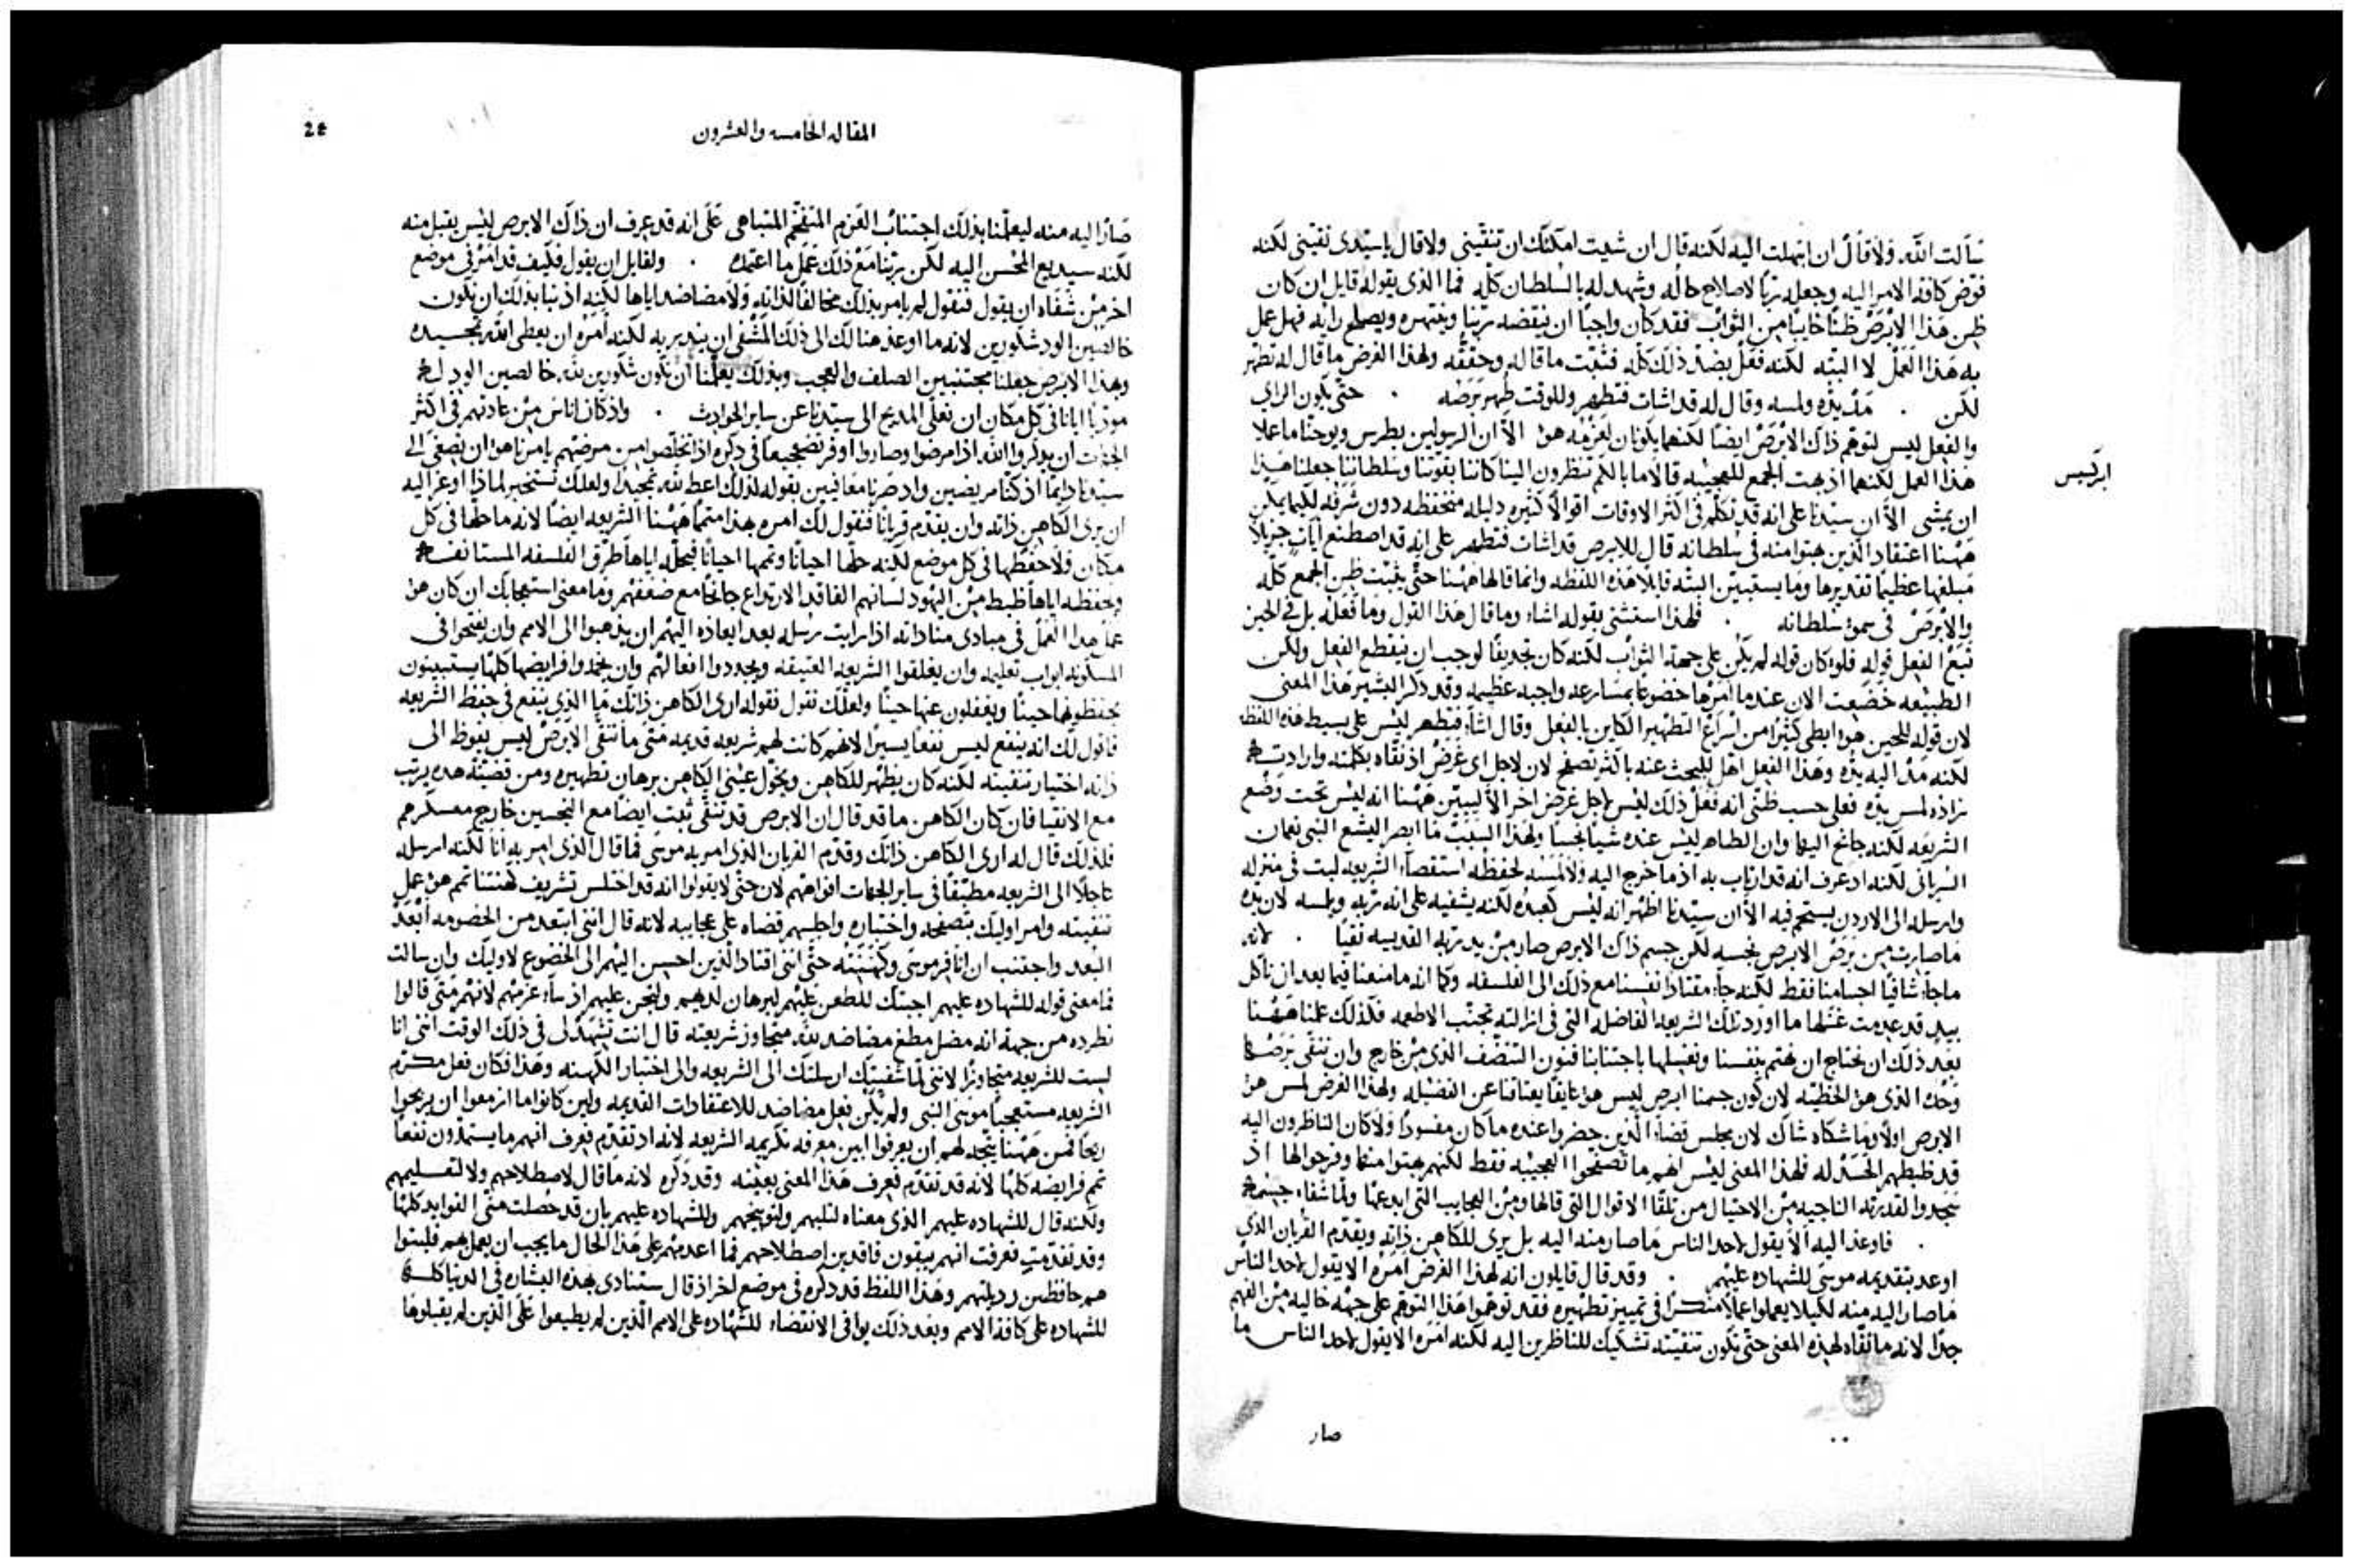 سالت الله. ولا قال ان ابتهلت اليه لكنه قال ان شيت امكنك ان تنقيني ولا قال يا سيدي نقيني لكنه
فوض كافة الامر اليه وجعله ربًا لاصلاح حاله وشهد له بالسلطان كله فما الذي يقوله قايل ان كان
ظن هذا الابرص ظنًا خايبًا من الثواب فقد كان واجبًا ان ينقضه ربنا وينتهره ويصلح رايه فهل عمل
به هذا العمل لا البته لكنه فعل بضد ذلك كله فثبت ما قاله وحققه ولهذا الغرض ما قال له تطهر
لكن . مد يده ولمسه وقال له قد اشات فتطهر وللوقت طهر برصه . حتى يكون الراي
والفعل ليس لتوهم ذاك الابرص ايضًا لكنهما يكونان لعزمه هو الا ان الرسولين بطرس ويوحنا ما عملا
هذا العمل لكنهما اذ بهت الجمع للعجيبه قالا ما بالكم تنظرون الينا كاننا بقوتنا وسلطاننا جعلنا هذا
ابركسيس
ان يمشي الا ان سيدنا على انه قد تكلم في اكثر الاوقات اقوالاً كثيره دليله منخفظه دون شرفه لكيما يمكن
ههنا اعتقاد الذين بهتوا منه في سلطانه قال للابرص قد اشات فتطهر على انه قد اصطنع ايات جزيلاً
مبلغها عظيمًا تقديرها وما يستبين البته قايلا هذه اللفظه وانما قالها ههنا حتى يثبت ظن الجمع كله
والابرص في سمو سلطانه . فلهذا استثنى بقوله اشاء وما قال هذا القول وما فعله بل في الحين
تبع الفعل قوله فلو كان قوله لم يكن على جهة الثواب لكنه كان تجديفًا لوجب ان ينقطع الفعل ولكن
الطبيعه خضعت الان عندما امرها خضوعًا بمسارعه واجبه عظيمه وقد ذكر البشير هذا المعنى
لان قوله للحين هو ابطى كثيرًا من اسراع التطهير الكاين بالفعل وقال اشاء فتطهر ليس على بسيط هذه اللفظه
لكنه مد اليه يده وهذا الفعل اهل للبحث عنه باكثر تصفح لان لاجل اي غرض اذ نقاه بكلمته وارادته
زاده لمس يده فعلى حسب ظني انه فعل ذلك ليس لاجل غرض اخر الا ليبين ههنا انه ليس تحت وضع
الشريعه لكنه جانح اليها وان الطاهر ليس عنده شيًا نجسًا ولهذا السبب ما ابصر اليشع النبي نعمان
السرياني لكنه اذ عرف انه قد ارتاب به اذ ما خرج اليه ولا لمسه لحفظه استقصاء الشريعه لبث في منزله
وارسله الى الاردن يستحم فيه الا ان سيدنا اظهر انه ليس كعبد لكنه يشفيه على انه ربه ويلمسه لان يده
ما صارت من برص الابرص نجسه لكن جسم ذاك الابرص صار من يد ربه القديسه نقيًا . لانه
ما جاء شافيًا اجسامنا فقط لكنه جاء مقتادًا نفسنا مع ذلك الى الفلسفه وكما انه ما منعنا فيما بعد ان ناكل
بيد قد عدمت غسلها ما اورد تلك الشريعه الفاضله التي في ازالته تجنب الاطعمه فكذلك علمنا ههنا
بعد ذلك ان نحتاج ان نهتم بنفسنا ونغسلها باجتنابنا فنون التنضف الذي من خارج وان ننقي برصها
وحد الذي هو الخطيه لان كون جسمنا ابرص ليس هو عايقًا يعتاقنا عن الفضيله ولهذا الغرض لمس هو
الابرص اولاً وما شكاه شاك لان مجلس قضاء الذين حضروا عنده ما كان مفسودًا ولا كان الناظرون اليه
قد ظبطهم الحسد له فلهذا المعنى ليس انهم ما تصفحوا العجيبه فقط لكنهم بهتوا منها وفرحوا لها اذ
سجدوا لقدرته الناجيه من الاحتيال من تلقاء الاقوال التي قالها ومن العجايب التي ابدعها ولما شفاء جسمه
. فاوعز اليه الا يقول لاحد الناس ما صار منه اليه بل يري للكاهن ذاته ويقدم القربان الذي
اوعز بتقديمه موسى للشهاده عليهم . وقد قال قايلون انه لهذا الغرض امره الا يقول لاحد الناس
ما صار اليه منه لكيلا يعملوا عملاً منكرًا في تمييز تطهيره فقد توهموا هذا التوهم على جهة خاليه من الفهم
جدًا لانه ما نقاه لهذه المعنى حتى تكون تنقيته تشكيك للناظرين اليه لكنه امره الا يقول لاحد الناس ما
صار
المقاله الخامسه والعشرون
صار اليه منه ليعلمنا بذلك اجتناب العزم المتفخم المتباهي على انه قد عرف ان ذاك الابرص ليس يقبل منه
لكنه سيذيع المحسن اليه لكن ربنا مع ذلك عمل ما اعتمده . ولقايل ان يقول فكيف قد امر في موضع
اخر من شفاه ان يقول فنقول لم يامر بذلك مخالفًا لذاته ولا مضاضد اياها لكنه اذ بنا بذلك ان نكون
خالصين الود شكورين لانه ما اوعز هنالك الى ذلك المشفى ان ينذر به لكنه امره ان يعطي الله تمجيده
وبهذا الابرص جعلنا مجتنبين الصلف والعجب وبذلك يعلمنا ان نكون شكورين لله. خالصين الود له
موذبًا ايانا في كل مكان ان نعلي المديح الى سيدنا عن ساير الحوادث . واذ كان اناس من عادتهم في اكثر
الجهات ان يذكروا الله اذا مرضوا وصاروا اوفر تضجيعًا في ذكره اذا تخلصوا من مرضهم يامرنا هو ان نصغي الى
سيدنا دايمًا اذ كنا مريضين واذ صرنا معافيين بقوله لذلك اعط لله تمجيدًا ولعلك تستخبر لماذا اوعز اليه
ان يري الكاهن ذاته وان يقدم قربانًا فنقول لك امره بهذا متممًا ههنا الشريعه ايضًا لانه ما حلها في كل
مكان ولا حفظها في كل موضع لكنه حلها احيانًا وتممها احيانًا فبحله اياها طرق الفلسفه المستانفه
وبحفظه اياها ظبط من اليهود لسانهم الفاقد الارتداع جانحًا مع ضعفهم وما معنى استعجابك ان كان هو
عمل هذا العمل في مبادي مناداته اذا رايت رسله بعد ايعازه اليهم ان يذهبوا الى الامم وان يفتحوا في
المسكونه ابواب تعليمه وان يغلقوا الشريعه العتيقه ويجددوا افعالهم وان يخمدوا فرايضها كلها يستبينون
يحفظونها حينًا ويغفلون عنها حينًا ولعلك تقول فقوله اري الكاهن ذاتك ما الذي ينفع في حفظ الشريعه
فاقول لك انه ينفع ليس نفعًا يسيرًا لانهم كانت لهم شريعه قديمه متى ما تنقى الابرص ليس يفوظ الى
ذاته اختيار تنقيته لكنه كان يظهر للكاهن ويخول عيني الكاهن برهان تطهيره ومن قضيته هذه يرتب
مع الانقيا فان كان الكاهن ما قد قال ان الابرص قد تنقى ثبت ايضًا مع النجسين خارج معسكرهم
فلذلك قال له اري الكاهن ذاتك وقدم القربان الذي امر به موسى فما قال الذي امر به انا لكنه ارسله
عاجلاً الى الشريعه مطبقًا في ساير الجهات افواههم لان حتى لا يقولوا انه قد اختلس تشريف كهنتنا تمم هو عمل
تنقيته وامر اوليك بتصفحه واختباره واجلسهم قضاه على عجايبه لانه قال انني ابتعد من الخصومه ابعد
البعد واجتنب ان انافر موسى وكهنته حتى انني اقتاد الذين احسن اليهم الى الخضوع لاوليك وان سالت
فما معنى قوله للشهاده عليهم اجبتك للطعن عليهم لبرهان لديهم
نطرده من جهة انه مضل مطغ مضاضد لله. متجاوز شريعته قال انت تشهد لي في ذلك الوقت انني انا
لست للشريعه متجاوزًا لانني لما شفيتك ارسلتك الى الشريعه والى اختبار الكهنه وهذا فكان فعل مكرم
الشريعه مستعجبًا موسى النبي ولم يكن فعل مضاضد للاعتقادات القديمه ولين كانوا ما ازمعوا ان يربحوا
ربحًا فمن ههنا يتجه لهم ان يعرفوا ابين معرفه تكريمه الشريعه لانه اذ تقدم فعرف انهم ما يستمدون نفعًا
تمم فرايضه كلها لانه قد تقدم فعرف هذا المعنى بعينه وقد ذكره لانه ما قال لاصطلاحهم ولا لتعليمهم
ولكنه قال للشهاده عليهم الذي معناه لثلبهم ولتوبيخهم وللشهاده عليهم بان قد حصلت مني الفوايد كلها
وقد تقدمت فعرفت انهم يبقون فاقدين اصطلاحهم فما اعدمتهم على هذا الحال ما يجب ان يعمل لهم فلبثوا
هم حافظين رديلتهم وهذا اللفظ قد ذكره في موضع اخر اذ قال ستنادى بهذه البشاره في الدنيا كلها
للشهاده على كافة الامم وبعد ذلك يوافي الانقضاء للشهاده على الامم الذين لم يطيعوا على الذين لم يقبلوها